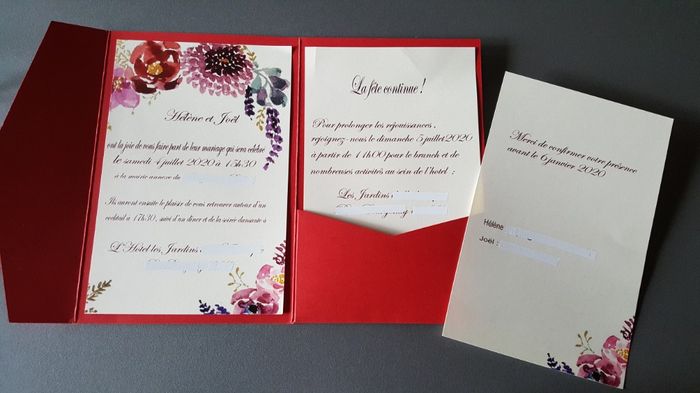 Hélène et Joël
ont la joie de vous faire part de leur mariage qui sera célébré
le samedi 4 juillet 2020 à 15h30
à la mairie annexe du
Ils auront ensuite le plaisir de vous retrouver autour d'un
cocktail à 17h30, suivi d'un dîner et de la soirée dansante à
L'Hôtel les Jardins
La fête continue !
Pour prolonger les réjouissances,
rejoignez-nous le dimanche 5 juillet 2020
à partir de 11h00 pour le brunch et de
nombreuses activités au sein de l'hôtel :
Les Jardins
Merci de confirmer votre présence
avant le 6 janvier 2020
Hélène
Joël :